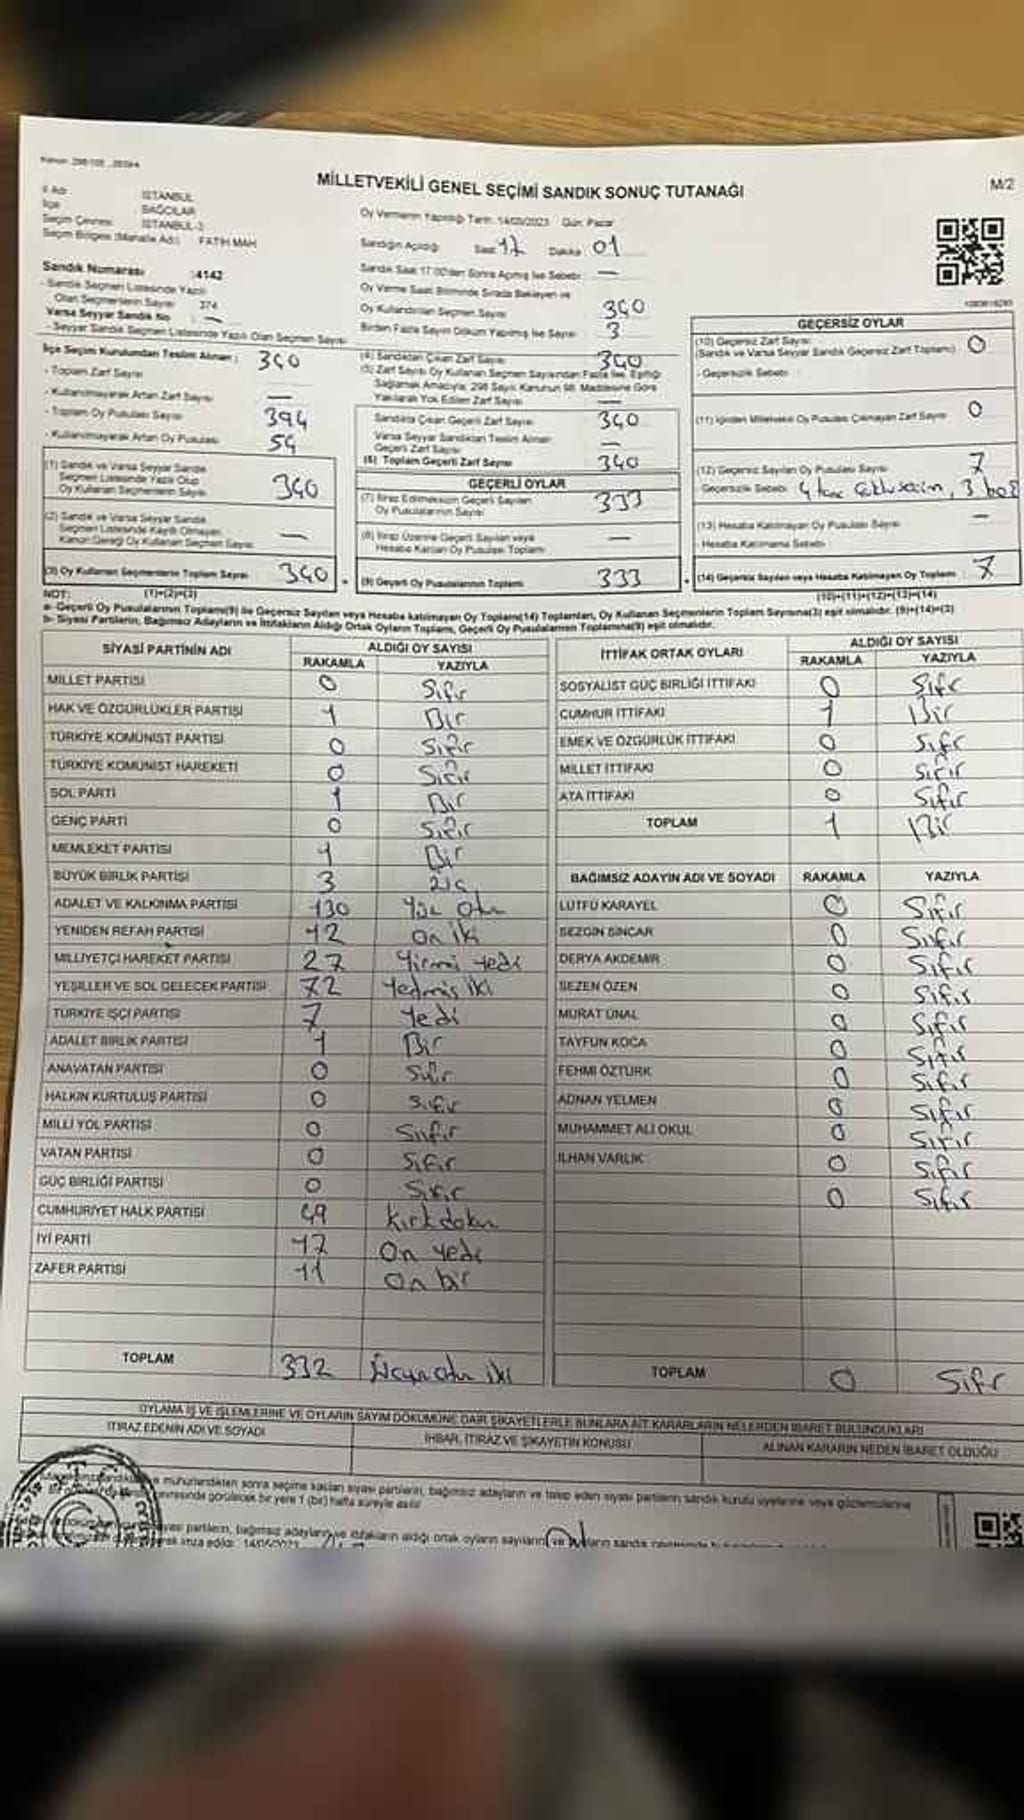 MİLLETVEKİLİ GENEL SEÇİMİ SANDIK SONUÇ TUTANAĞI
M/2
İl Adı : İSTANBUL
İlçe : BAĞCILAR
Seçim Çevresi : İSTANBUL-3
Seçim Bölgesi (Mahalle Adı) : FATİH MAH
Oy Vermenin Yapıldığı Tarih: 14/05/2023 Gün: Pazar
Sandığın Açıldığı Saat: 17 Dakika: 01
Sandık Saat 17.00'den Sonra Açılmış İse Sebebi: —
Oy Verme Saati Bitiminde Sırada Bekleyen ve
Oy Kullandırılan Seçmen Sayısı: 340
Birden Fazla Sayım Döküm Yapılmış İse Sayısı: 3
Sandık Numarası : 4142
- Sandık Seçmen Listesinde Yazılı
Olan Seçmenlerin Sayısı : 374
Varsa Seyyar Sandık No : —
- Seyyar Sandık Seçmen Listesinde Yazılı Olan Seçmen Sayısı:
İlçe Seçim Kurulundan Teslim Alınan : 340
- Toplam Zarf Sayısı
- Kullanılmayarak Artan Zarf Sayısı —
- Toplam Oy Pusulası Sayısı 394
- Kullanılmayarak Artan Oy Pusulası 54
(1) Sandık ve Varsa Seyyar Sandık
Seçmen Listesinde Yazılı Olup
Oy Kullanan Seçmenlerin Sayısı 340
(2) Sandık ve Varsa Seyyar Sandık
Seçmen Listesinde Kayıtlı Olmayan,
Kanun Gereği Oy Kullanan Seçmen Sayısı —
(3) Oy Kullanan Seçmenlerin Toplam Sayısı 340
(1)+(2)=(3)
(4) Sandıktan Çıkan Zarf Sayısı 340
(5) Zarf Sayısı Oy Kullanan Seçmen Sayısından Fazla İse, Eşitliği
Sağlamak Amacıyla, 298 Sayılı Kanunun 98. Maddesine Göre
Yakılarak Yok Edilen Zarf Sayısı —
Sandıkta Çıkan Geçerli Zarf Sayısı 340
Varsa Seyyar Sandıktan Teslim Alınan
Geçerli Zarf Sayısı —
(6) Toplam Geçerli Zarf Sayısı 340
GEÇERLİ OYLAR
(7) İtiraz Edilmeksizin Geçerli Sayılan
Oy Pusulalarının Sayısı 333
(8) İtiraz Üzerine Geçerli Sayılan veya
Hesaba Katılan Oy Pusulası Toplamı —
(9) Geçerli Oy Pusulalarının Toplamı 333
GEÇERSİZ OYLAR
(10) Geçersiz Zarf Sayısı
(Sandık ve Varsa Seyyar Sandık Geçersiz Zarf Toplamı) 0
- Geçersizlik Sebebi :
(11) İçinden Milletvekili Oy Pusulası Çıkmayan Zarf Sayısı 0
(12) Geçersiz Sayılan Oy Pusulası Sayısı 7
Geçersizlik Sebebi: 4 tane 3 boş
(13) Hesaba Katılmayan Oy Pusulası Sayısı —
- Hesaba Katılmama Sebebi :
(14) Geçersiz Sayılan veya Hesaba Katılmayan Oy Toplamı : 7
(10)+(11)+(12)+(13)=(14)
NOT:
a- Geçerli Oy Pusulalarının Toplamı(9) ile Geçersiz Sayılan veya Hesaba katılmayan Oy Toplamı(14) Toplamları, Oy Kullanan Seçmenlerin Toplam Sayısına(3) eşit olmalıdır. (9)+(14)=(3)
b- Siyasi Partilerin, Bağımsız Adayların ve İttifakların Aldığı Ortak Oyların Toplamı, Geçerli Oy Pusulalarının Toplamına(9) eşit olmalıdır.
SİYASİ PARTİNİN ADI ALDIĞI OY SAYISI
RAKAMLA YAZIYLA
MİLLET PARTİSİ 0 Sıfır
HAK VE ÖZGÜRLÜKLER PARTİSİ 1 Bir
TÜRKİYE KOMÜNİST PARTİSİ 0 Sıfır
TÜRKİYE KOMÜNİST HAREKETİ 0 Sıfır
SOL PARTİ 1 Bir
GENÇ PARTİ 0 Sıfır
MEMLEKET PARTİSİ 1 Bir
BÜYÜK BİRLİK PARTİSİ 3 Üç
ADALET VE KALKINMA PARTİSİ 130 Yüz Otuz
YENİDEN REFAH PARTİSİ 12 On iki
MİLLİYETÇİ HAREKET PARTİSİ 27 Yirmi yedi
YEŞİLLER VE SOL GELECEK PARTİSİ 72 Yetmiş iki
TÜRKİYE İŞÇİ PARTİSİ 7 Yedi
ADALET BİRLİK PARTİSİ 1 Bir
ANAVATAN PARTİSİ 0 Sıfır
HALKIN KURTULUŞ PARTİSİ 0 Sıfır
MİLLİ YOL PARTİSİ 0 Sıfır
VATAN PARTİSİ 0 Sıfır
GÜÇ BİRLİĞİ PARTİSİ 0 Sıfır
CUMHURİYET HALK PARTİSİ 49 Kırkdokuz
İYİ PARTİ 17 On yedi
ZAFER PARTİSİ 11 On bir
TOPLAM 332 Üçyüz otuz iki
İTTİFAK ORTAK OYLARI ALDIĞI OY SAYISI
RAKAMLA YAZIYLA
SOSYALİST GÜÇ BİRLİĞİ İTTİFAKI 0 Sıfır
CUMHUR İTTİFAKI 1 Bir
EMEK VE ÖZGÜRLÜK İTTİFAKI 0 Sıfır
MİLLET İTTİFAKI 0 Sıfır
ATA İTTİFAKI 0 Sıfır
TOPLAM 1 Bir
BAĞIMSIZ ADAYIN ADI VE SOYADI RAKAMLA YAZIYLA
LÜTFÜ KARAYEL 0 Sıfır
SEZGİN SİNCAR 0 Sıfır
DERYA AKDEMİR 0 Sıfır
SEZEN ÖZEN 0 Sıfır
MURAT ÜNAL 0 Sıfır
TAYFUN KOCA 0 Sıfır
FEHMİ ÖZTÜRK 0 Sıfır
ADNAN YELMEN 0 Sıfır
MUHAMMET ALİ OKUL 0 Sıfır
İLHAN VARLIK 0 Sıfır
0 Sıfır
TOPLAM 0 Sıfır
OYLAMA İŞ VE İŞLEMLERİNE VE OYLARIN SAYIM DÖKÜMÜNE DAİR ŞİKAYETLERLE BUNLARA AİT KARARLARIN NELERDEN İBARET BULUNDUKLARI
İTİRAZ EDENİN ADI VE SOYADI İHBAR, İTİRAZ VE ŞİKAYETİN KONUSU ALINAN KARARIN NEDEN İBARET OLDUĞU
mühürlendikten sonra seçime katılan siyasi partilerin, bağımsız adayların ve talep eden siyasi partilerin sandık kurulu üyelerine veya gözlemcilerine
çevresinde görülecek bir yere 1 (bir) hafta süreyle asılır
siyasi partilerin, bağımsız adayların ve ittifakların aldığı ortak oyların sayılarını
imza edildi. 14/05/2023